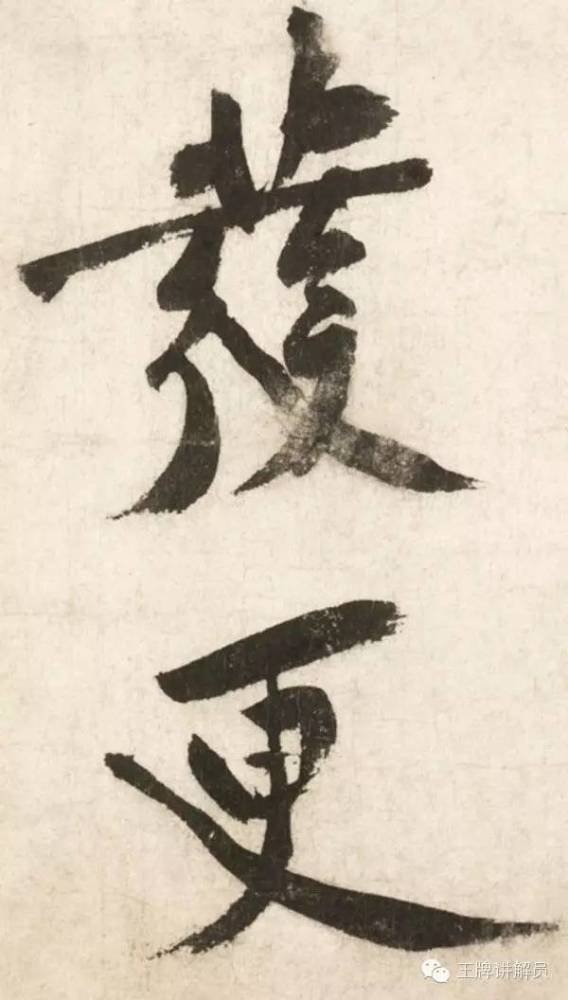 發
更
王牌讲解员